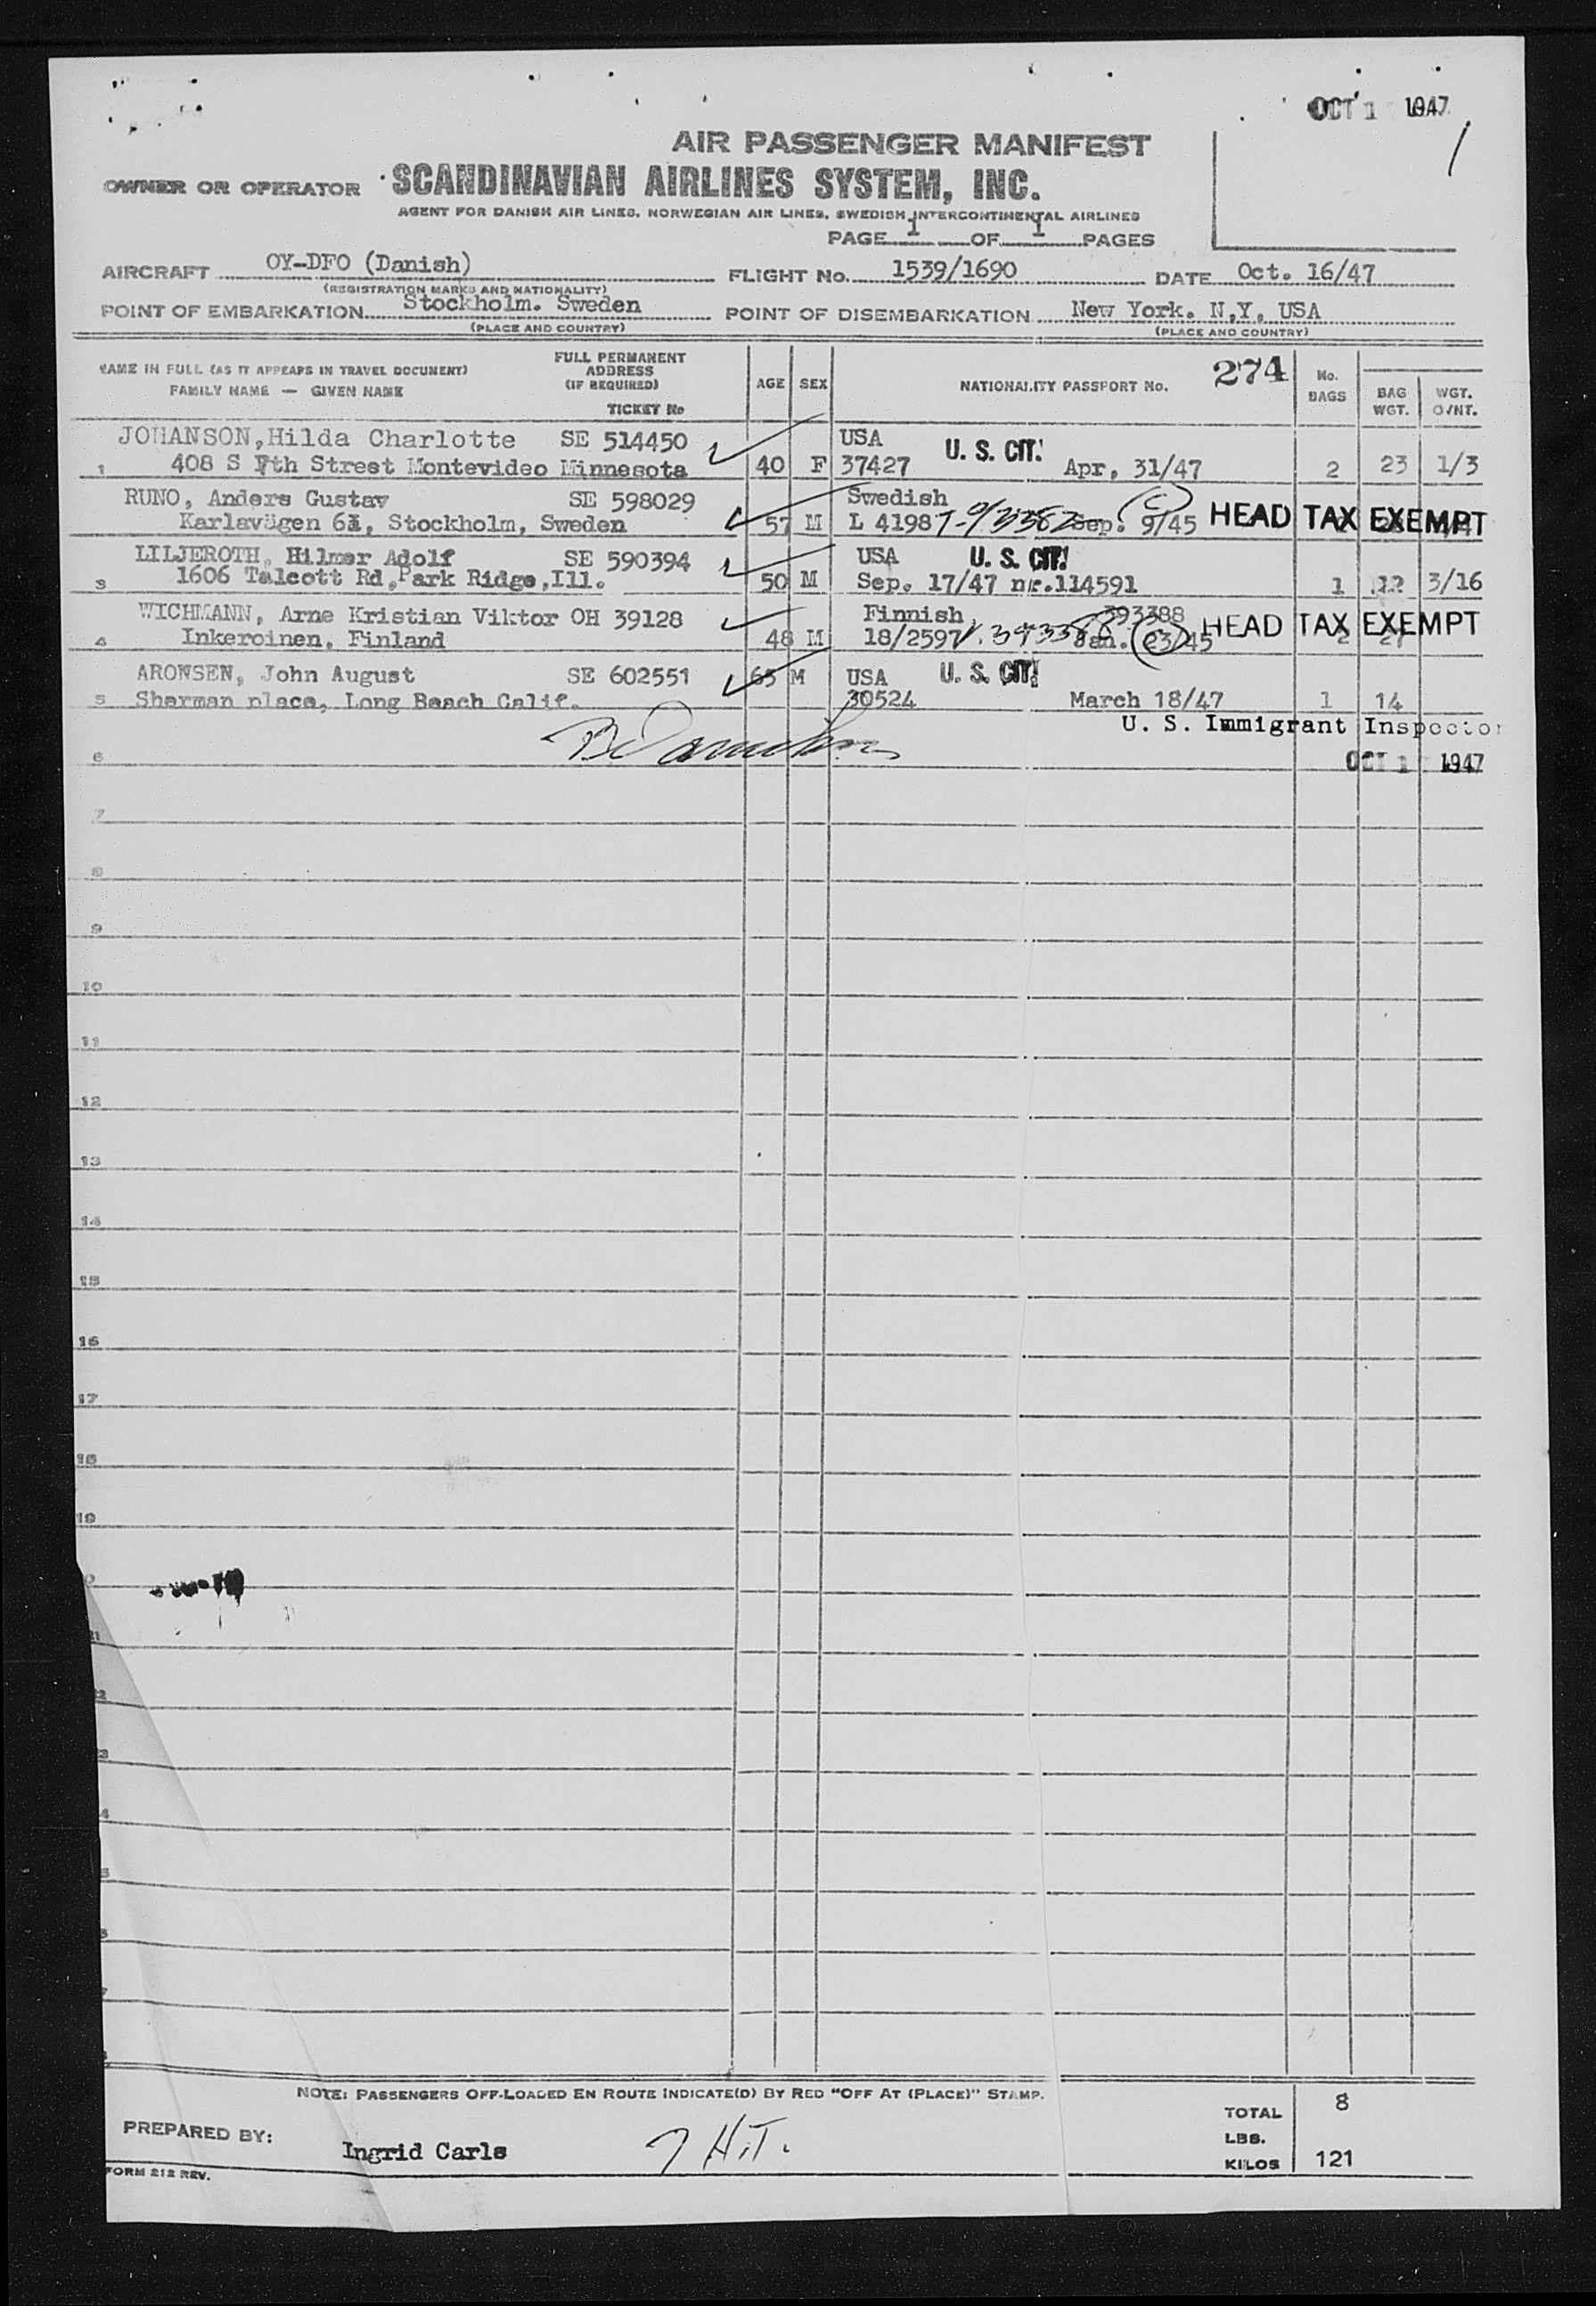 OCT 1 1947
AIR PASSENGER MANIFEST
OWNER OR OPERATOR SCANDINAVIAN AIRLINES SYSTEM, INC.
AGENT FOR DANISH AIR LINES, NORWEGIAN AIR LINES, SWEDISH INTERCONTINENTAL AIRLINES
PAGE 1 OF 1 PAGES
AIRCRAFT OY-DFO (Danish) FLIGHT No. 1539/1690 DATE Oct. 16/47
(REGISTRATION MARKS AND NATIONALITY)
POINT OF EMBARKATION Stockholm. Sweden POINT OF DISEMBARKATION New York. N.Y. USA
(PLACE AND COUNTRY) (PLACE AND COUNTRY)
NAME IN FULL (AS IT APPEARS IN TRAVEL DOCUMENT) FULL PERMANENT ADDRESS (IF REQUIRED)
FAMILY NAME — GIVEN NAME TICKET No AGE SEX NATIONALITY PASSPORT No. 274 No. BAGS BAG WGT. WGT. O/NT.
JOHANSON, Hilda Charlotte SE 514450 USA U. S. CIT.
1 408 S 7th Street Montevideo Minnesota 40 F 37427 Apr, 31/47 2 23 1/3
RUNO, Anders Gustav SE 598029 Swedish (C)
Karlavägen 61, Stockholm, Sweden 57 M L 4198 Sep. 9/45 HEAD TAX EXEMPT
LILJEROTH, Hilmer Adolf SE 590394 USA U. S. CIT.
3 1606 Talcott Rd, Park Ridge, Ill. 50 M Sep. 17/47 nr.114591 1 12 3/16
WICHMANN, Arne Kristian Viktor OH 39128 Finnish 393388
4 Inkeroinen, Finland 48 M 18/2597 Jan. 23/45 HEAD TAX EXEMPT
ARONSEN, John August SE 602551 65 M USA U. S. CIT.
5 Sherman place, Long Beach Calif. 30524 March 18/47 1 14
U. S. Immigrant Inspector
6 OCT 1 1947
7
8
9
10
11
12
13
14
15
16
17
18
19
NOTE: PASSENGERS OFF-LOADED EN ROUTE INDICATE(D) BY RED "OFF AT (PLACE)" STAMP.
TOTAL 8
PREPARED BY: Ingrid Carls 7 H.T. LBS.
KILOS 121
FORM 212 REV.